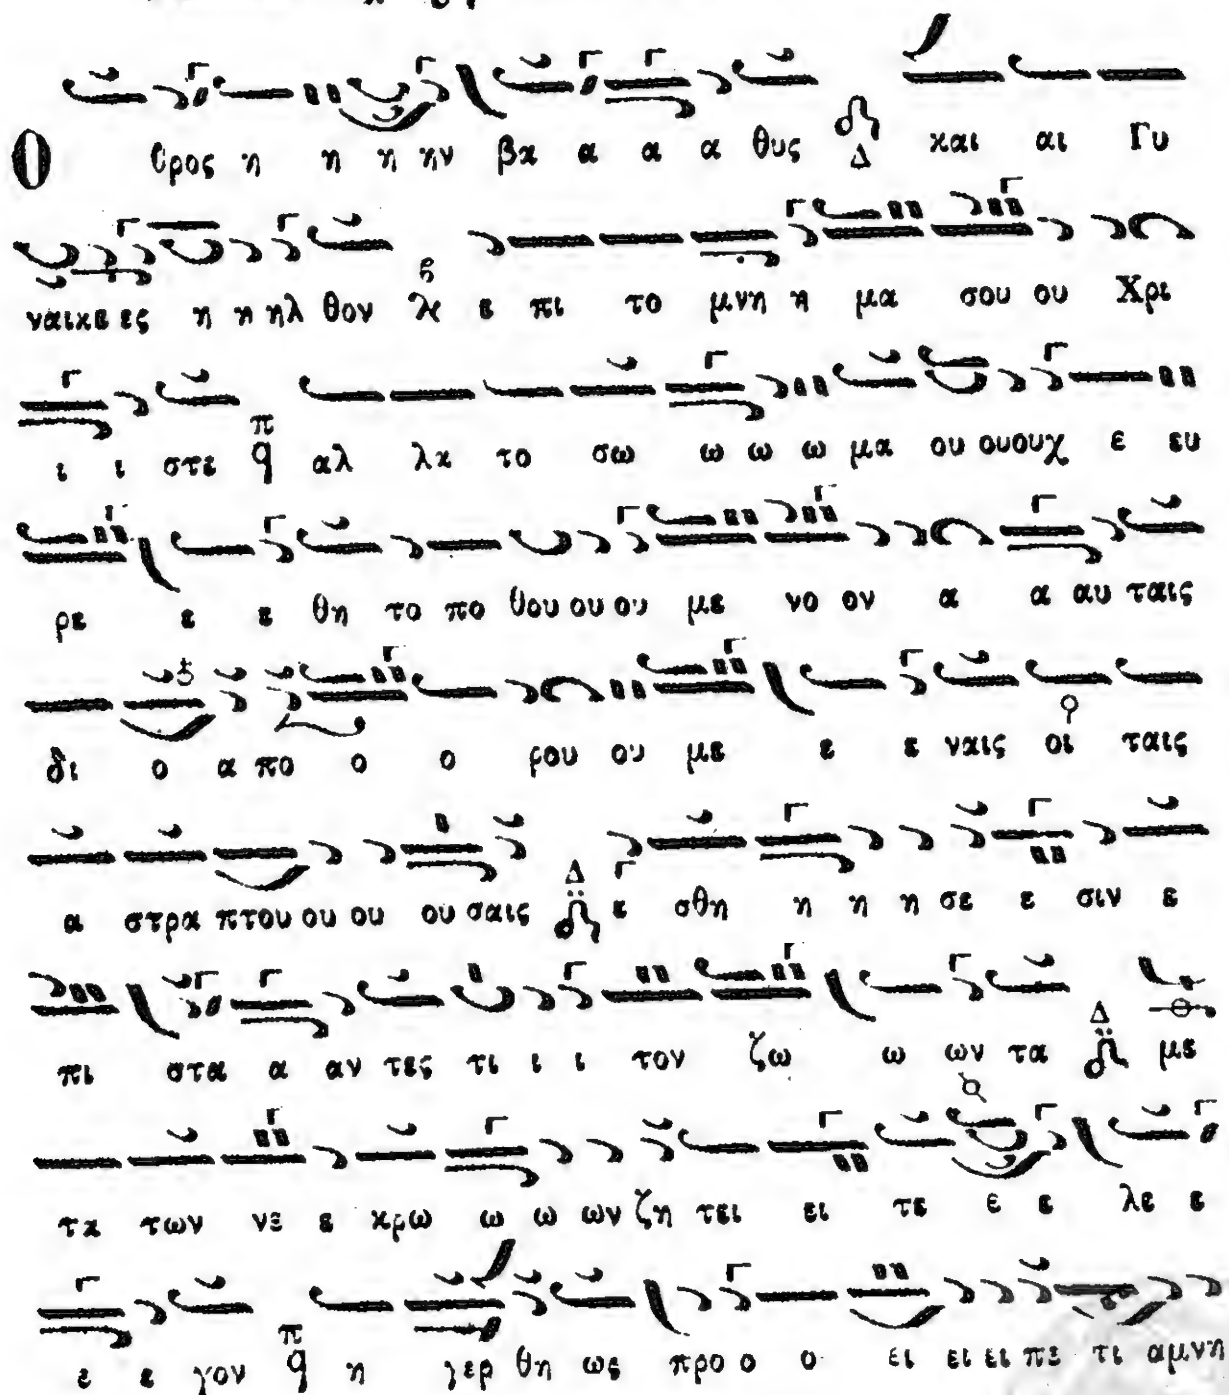 Ο θρος η η η ην βα α α α θυς Δ και αι Γυ
ναικε ες η η ηλ θον ε πι το μνη η μα σου ου Χρι
ι ι στε π q αλ λα το σω ω ω ω μα ου ουουχ ε ευ
ρε ε ε θη το πο θου ου ου με νο ον α α αυ ταις
δι ο α πο ο ο ρου ου με ε ε ναις οι ταις
α στρα πτου ου ου ου σαις Δ ε σθη η η η σε ε σιν ε
πι στα α αν τες τι ι ι τον ζω ω ων τα Δ με
τα των νε ε κρω ω ω ων ζη τει ει τε ε ε λε ε
ε ε γον π q η γερ θη ως προ ο ο ει ει ει πε τι αμνη